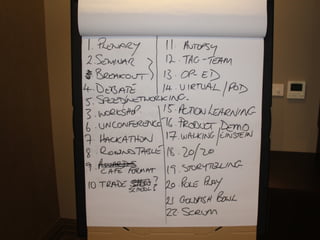 1. PLENARY
2. SEMINAR
BREAKOUT
4. DEBATE
5. SPEEDNETWORKING.
3. WORKSHOP
6. UNCONFERENCE
7 HACKATHON
8 ROUNDTABLE
9 AWARDS
CAFE FORMAT
10 TRADE SHOW?
SCHOOL?
11. AUTOPSY
12. TAG-TEAM
13. OP-ED
14. VIRTUAL/POD
15. ACTION LEARNING
16 PRODUCT DEMO
17 WALKING EINSTEIN
18. 20/20
19. STORYTELLING
20. ROLE PLAY
21 GOLDFISH BOWL
22. SCRUM